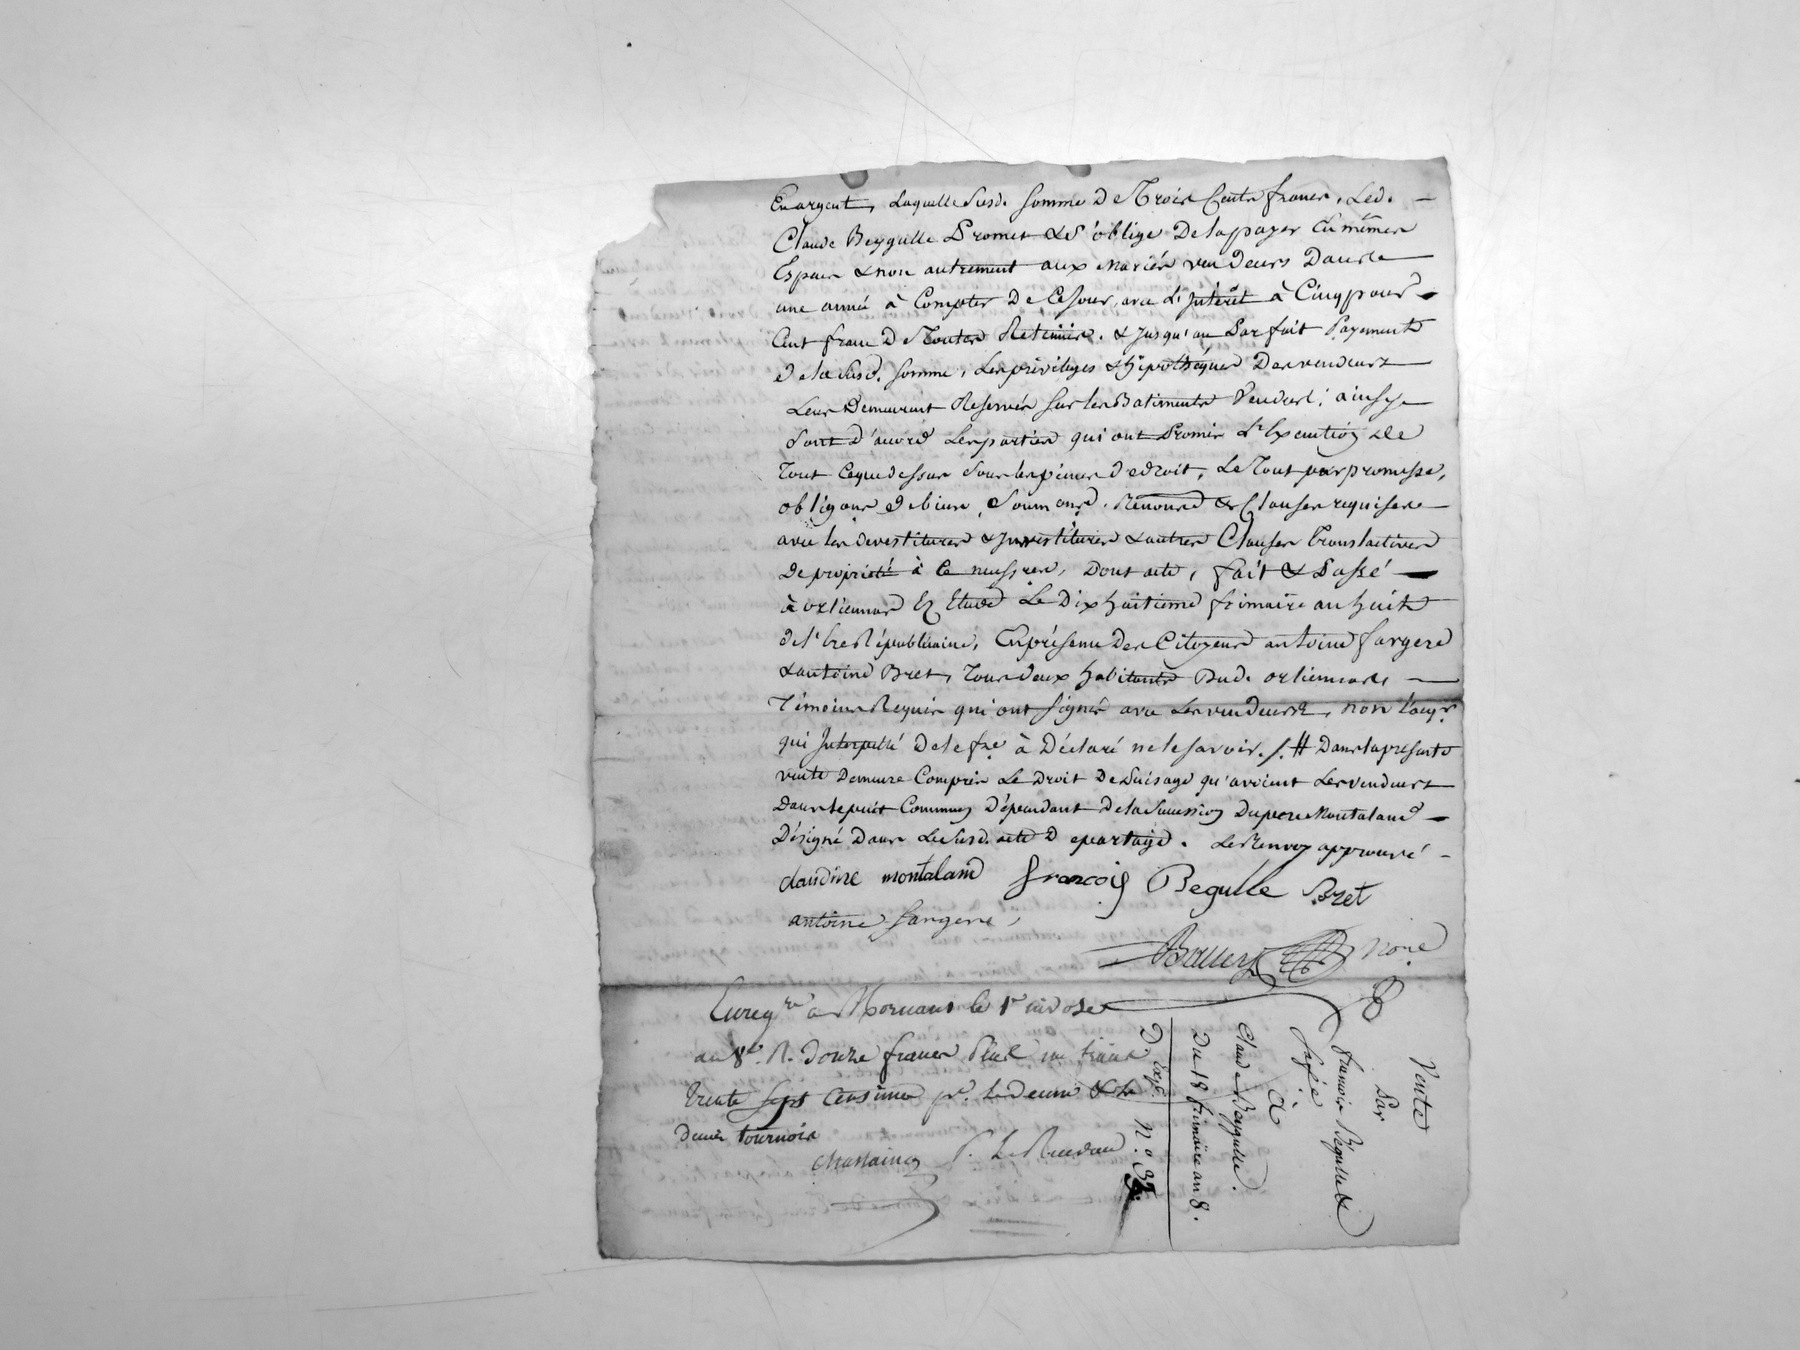 En argent, Laquelle Susd. Somme De Trois Cents francs, Led.
Claude Beygulle Promet & S'oblige De la payer En mêmes
Espèces & non autrement aux mariés vendeurs Dans
une année à Compter De Ce Jour, avec L'Intérêt à Cinq pour
Cent franc De Toutes Retenües. & Jusqu'au Parfait Payement
De la Susd. Somme, Les privileges & hipothéques Des vendeurs
Leur Demeurent Reservés Sur les Batiments Vendus; ainsy
Sont D'accord Les parties qui ont Promis L'Exécution De
Tout Ceque dessus Sous les peines De droit, Le Tout par promesse,
obligons De biens, Soumons. Renonc & Clauses requises
avec les devestitures & Investitures & autres Clauses translatives
De propriété à Ce necessres, Dont acte, fait & Passé
à orliennas En Etude Le Dix huitieme frimaire an huit
De l'Ere Républicaine, En présence Des Citoyens antoine fargere
& antoine Bret, Tous Deux habitants Dud. orliennas
Témoins Requis qui ont Signé avec Les vendeurs, non l'acqr
qui Interpellé De le fre à Déclaré ne le savoir./. # Dans la presente
vente Demeure Compris Le Droit De Puisage qu'avoient Les vendeurs
Dans le puit Commun Dépendant De la Succession Du pere Montaland
Désigné Dans Le Susd. acte De partage. Le Renvoy approuvé
claudine montaland françois Begulle Bret
antoine fargere
nore
Enregré à Mornant le 1er nivose
an 8e. R. Douze francs Plus un franc
trente sept Centimes pr. Le Decime & Le
Denier tournois
Vente
Par
francois Bégulle &
à
Claude Beygulle.
Du 18 frimaire an 8.
D. Expé. No.